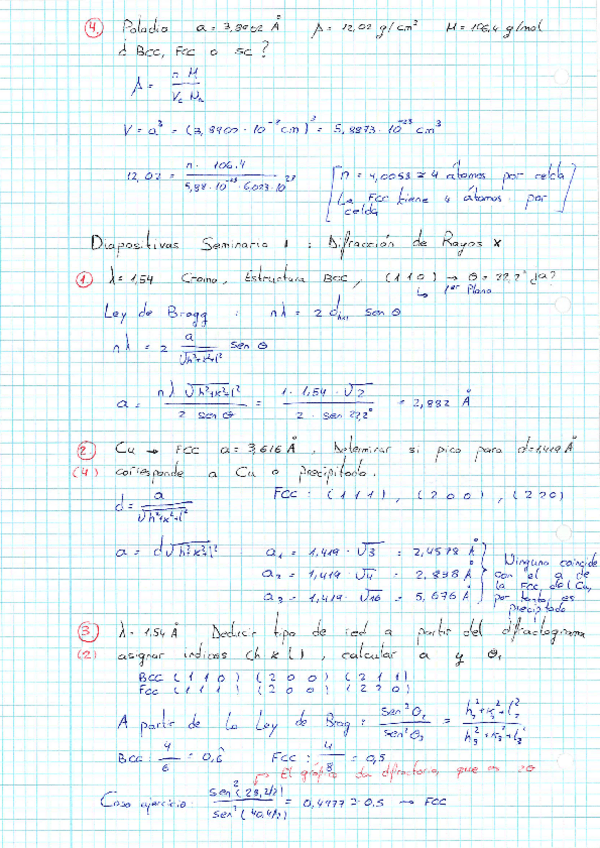 4. Paladio a = 3,8902 Å ρ = 12,02 g/cm³ M = 106,4 g/mol
¿BCC, FCC o SC?
ρ = n M / Vc Na
V = a³ = (3,8900 · 10⁻⁸ cm)³ = 5,8873 · 10⁻²³ cm³
12,02 = n · 106.4 / 5,88 · 10⁻²³ · 6,023 · 10²³
[n = 4,0058 ≈ 4 átomos por celda
La FCC tiene 4 átomos por
celda]
Diapositivas Seminario 1 : Difracción de Rayos X
1. λ = 1,54 Cromo, Estructura BCC, (1 1 0) → θ = 22,2° ¿a?
↳ 1er Plano
Ley de Bragg : nλ = 2 dhkl sen θ
nλ = 2 a / √h²+k²+l² sen θ
a = nλ √h²+k²+l² / 2 sen θ = 1 · 1,54 · √2 / 2 · sen 22,2° = 2,882 Å
2. Cu → FCC a = 3,616 Å, Determinar si pico para d = 1,419 Å
(4) corresponde a Cu o precipitado.
d = a / √h²+k²+l² FCC : (1 1 1), (2 0 0), (2 2 0)
a = d √h²+k²+l² : a₁ = 1,419 · √3 = 2,4578 Å
a₂ = 1,419 · √4 = 2,838 Å
a₃ = 1,419 · √16 = 5,676 Å
Ninguno coincide
con el a de
la FCC del Cu,
por tanto, es
precipitado
3. λ = 1.54 Å Deducir tipo de red a partir del difractograma
(2) asignar indices (h k l), calcular a y θ,
BCC (1 1 0) (2 0 0) (2 1 1)
FCC (1 1 1) (2 0 0) (2 2 0)
A partir de la Ley de Brag : sen² θ₂ / sen² θ₃ = h₂²+k₂²+l₂² / h₃²+k₃²+l₃²
BCC : 4/6 = 0,6 FCC : 4/8 = 0,5
El gráfico da difractoria, que es 2θ
Caso ejercicio : sen² (28,2/2) / sen² (40,4/2) = 0,4977 ≈ 0.5 → FCC